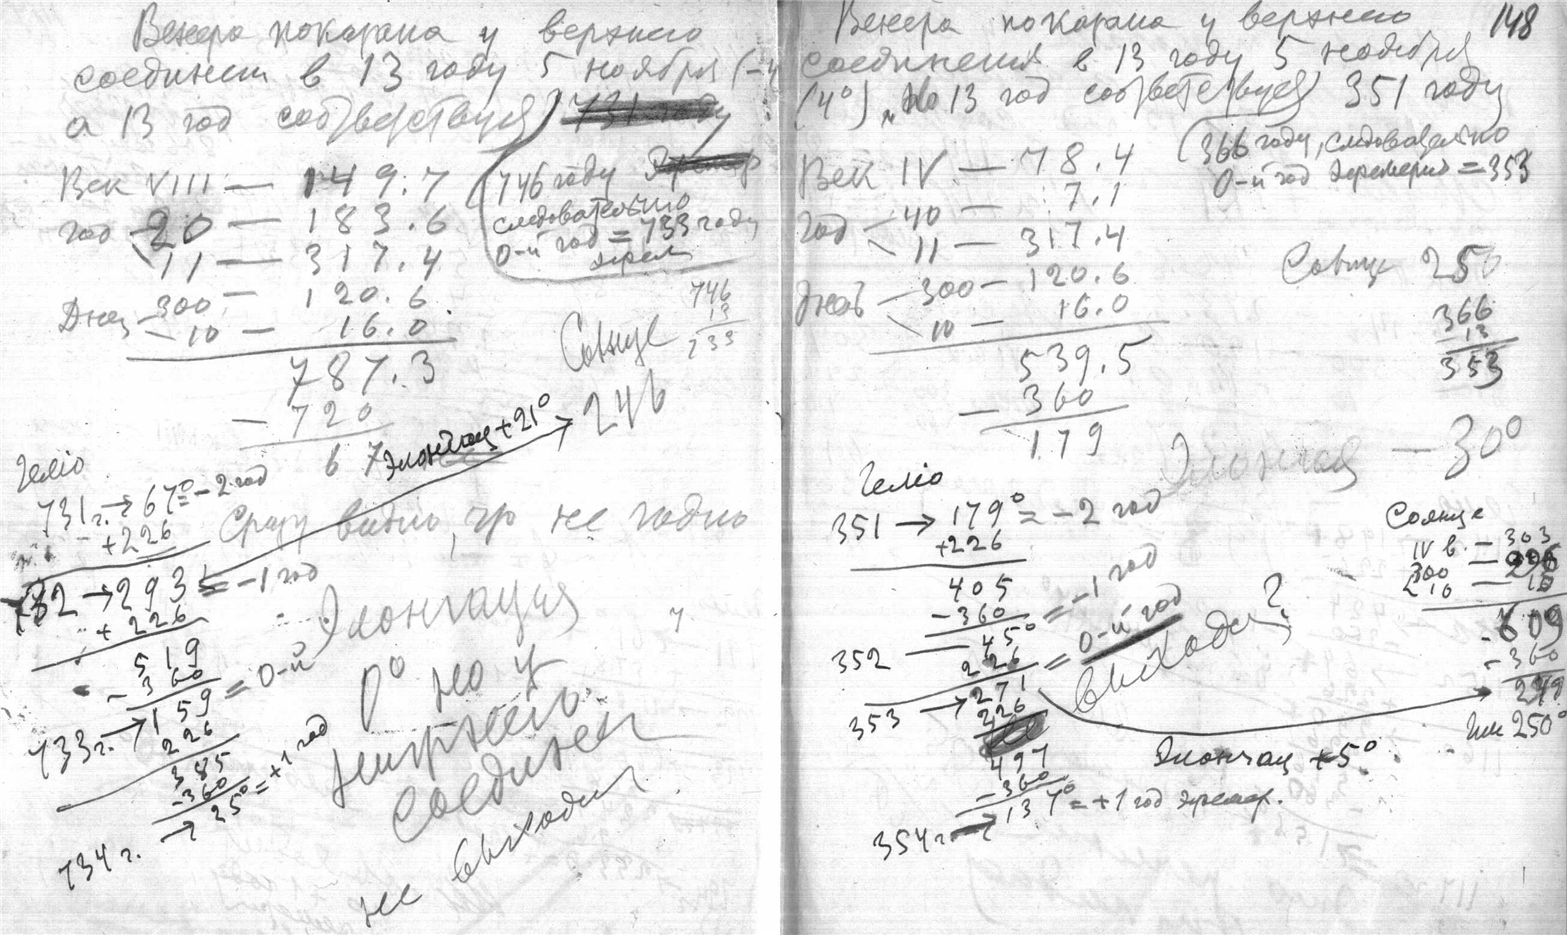 Венера показана у верхнего
соединен в 13 году 5 ноября (-4
а 13 год соответствует
Век VIII — 149.7
год 20 — 183.6
11 — 317.4
Дней 300 — 120.6
10 — 16.0
787.3
— 720
67
(746 году
следовательно
0-й год = 733 году
эрем
746
13
733
Солнце
246
Элонгац +21°
Геліо
731 г. → 67° = -2 год
+226
Сразу видно, что не годно
732 → 293 = -1 год
+ 226
519
- 360
733 г. → 159 = 0-й
226
385
-360
734 г. → 25° = +1 год
Элонгация
0° но у
нижнего
соединен
не выходит
148
Венера показана у верхнего
соединения в 13 году 5 ноября
(4°), Но 13 год соответствует 351 году
(366 году, следовательно
0-й год эремерид = 353
Век IV — 78.4
год 40 — 7.1
11 — 317.4
Дней 300 — 120.6
10 — 16.0
539.5
— 360
179
Солнце 250
366
13
353
Элонгац — 30°
Геліо
351 → 179° = -2 год
+226
405
-360
352 — 45° = -1 год
226
353 → 271 = 0-й год
226
497
-360
354 г. → 137° = +1 год эремер.
выходит?
Элонгац +5°
Солнце
IV в. — 303
300 — 296
10 — 10
609
- 360
249
или 250°